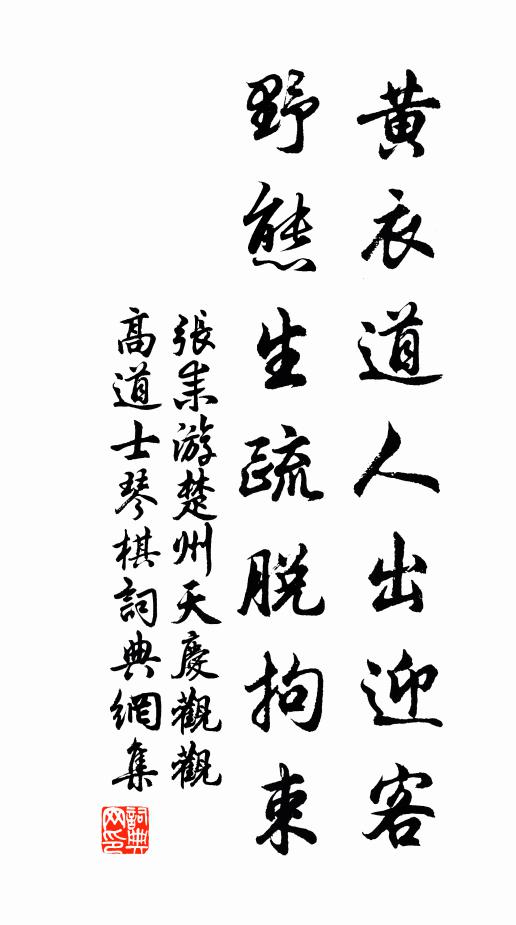 黃衣道人出迎客
野態生疏脫拘束
張耒游楚州天慶觀觀
高道士琴棋詞典網集
詞典
网印